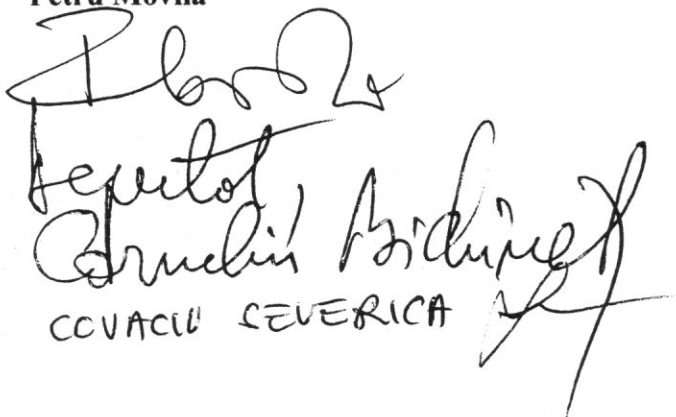 Petru Movilă
Deputat,
Corneliu Bichineț
COVACIU SEVERICA